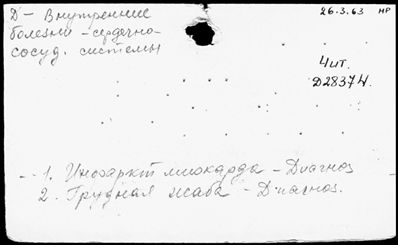 Д – Внутренние
болезни – сердечно-
сосуд. системы
26.3.63 НР
Чит.
D28374.
1. Инфаркт миокарда – Диагноз
2. Грудная жаба – Диагноз.